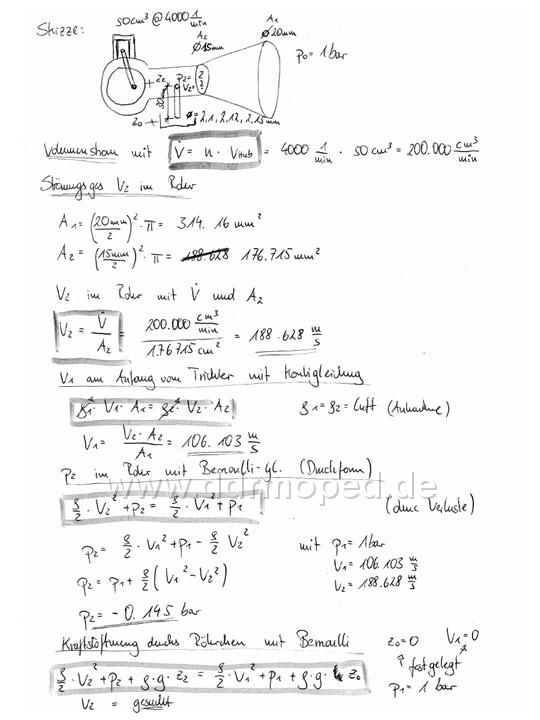 Skizze:
50cm³ @ 4000 1/min
A₁
ø20mm
A₂
ø15mm
p₀ = 1bar
z₂
p₂=
V₂=
30mm
z₀
ø = 2,1, 2,12, 2,15mm
Volumenstrom mit V̇ = n · V_Hub = 4000 1/min · 50 cm³ = 200.000 cm³/min
Strömungsges V₂ im Rohr
A₁ = (20mm/2)² · π = 314.16 mm²
A₂ = (15mm/2)² · π = 188.628 176.715mm²
V₂ im Rohr mit V̇ und A₂
V₂ = V̇/A₂ = 200.000 cm³/min / 1.76715 cm² = 188.628 m/s
V₁ am Anfang vom Trichter mit Kontigleichung
ρ₁ · V₁ · A₁ = ρ₂ · V₂ · A₂
ρ₁ = ρ₂ = Luft (Annahme)
V₁ = V₂ · A₂ / A₁ = 106.103 m/s
p₂ im Rohr mit Bernoulli-gl. (Druckform)
www.ddrmoped.de
ρ/2 · V₂² + p₂ = ρ/2 · V₁² + p₁
(ohne Verluste)
p₂ = ρ/2 · V₁² + p₁ - ρ/2 V₂²
mit p₁ = 1bar
V₁ = 106.103 m/s
p₂ = p₁ + ρ/2 (V₁² - V₂²)
V₂ = 188.628 m/s
p₂ = - 0.145 bar
Kraftstoffströmung durchs Röhrchen mit Bernoulli
z₀=0 V₁=0
festgelegt
ρ/2 · V₂² + p₂ + ρ · g · z₂ = ρ/2 · V₁² + p₁ + ρ · g · z₀
p₁ = 1 bar
V₂ = gesucht